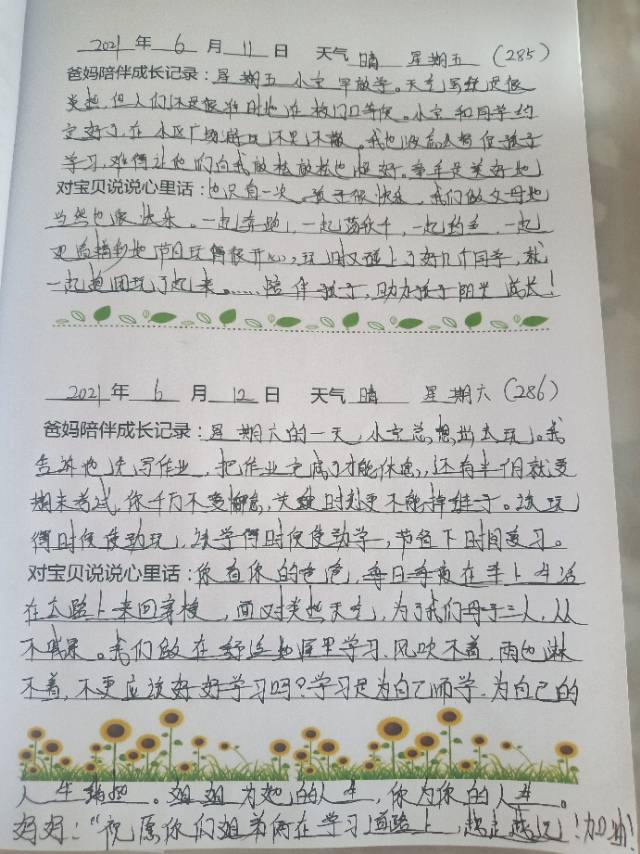 2021 年 6 月 11 日 天气 晴 星期五 (285)
爸妈陪伴成长记录：星期五小宝早放学。天气虽然是很
炎热，但人们还是很准时地在校门口等候。小宝和同学约
定好了，在小区广场游玩不见不散。我也没怎么督促孩子
学习，难得让他们自我放松放松也挺好。童年是美好地，
对宝贝说说心里话：也只有一次。孩子很快乐，我们做父母地
当然也很快乐。一起奔跑，一起荡秋千，一起约会，一起
更追精彩地节目玩得很开心，玩时又碰上了好几个同学，就
一起抱团玩了起来。……陪伴孩子，助力孩子阳光成长！
2021 年 6 月 12 日 天气 晴 星期六 (286)
爸妈陪伴成长记录：星期六的一天，小宝总想出去玩。我
告诉他先写作业，把作业完成了才能休息，还有半个月就要
期末考试，你千万不要懈怠，关键时刻更不能掉链子。该玩
得时候使劲玩，该学得时候使劲学，节省下时间复习。
对宝贝说说心里话：你看你的爸爸，每日每夜在车上生活
在大路上来回穿梭，面对炎热天气，为了我们母子三人，从
不喊累。我们做在舒适地屋里学习，风吹不着，雨也淋
不着，不更应该好好学习吗？学习是为自己而学，为自己的
人生
。姐姐为她的人生，你为你的人生。
妈妈：“祝愿你们姐弟俩在学习道路上，越走越远！加油！